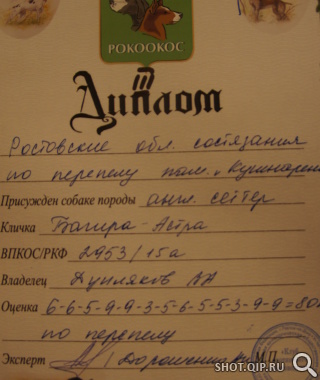 РОКООКОС
III
Диплом
Ростовские обл. состязания
по перепелу пам.
Присужден собаке породы англ. сеттер
Кличка Багира-Астра
ВПКОС/РКФ 2953/15а
Владелец
Оценка 6-6-5-9-9-3-5-6-5-5-3-9-9=80
по перепелу
Эксперт М.П.
SHOT.QIP.RU